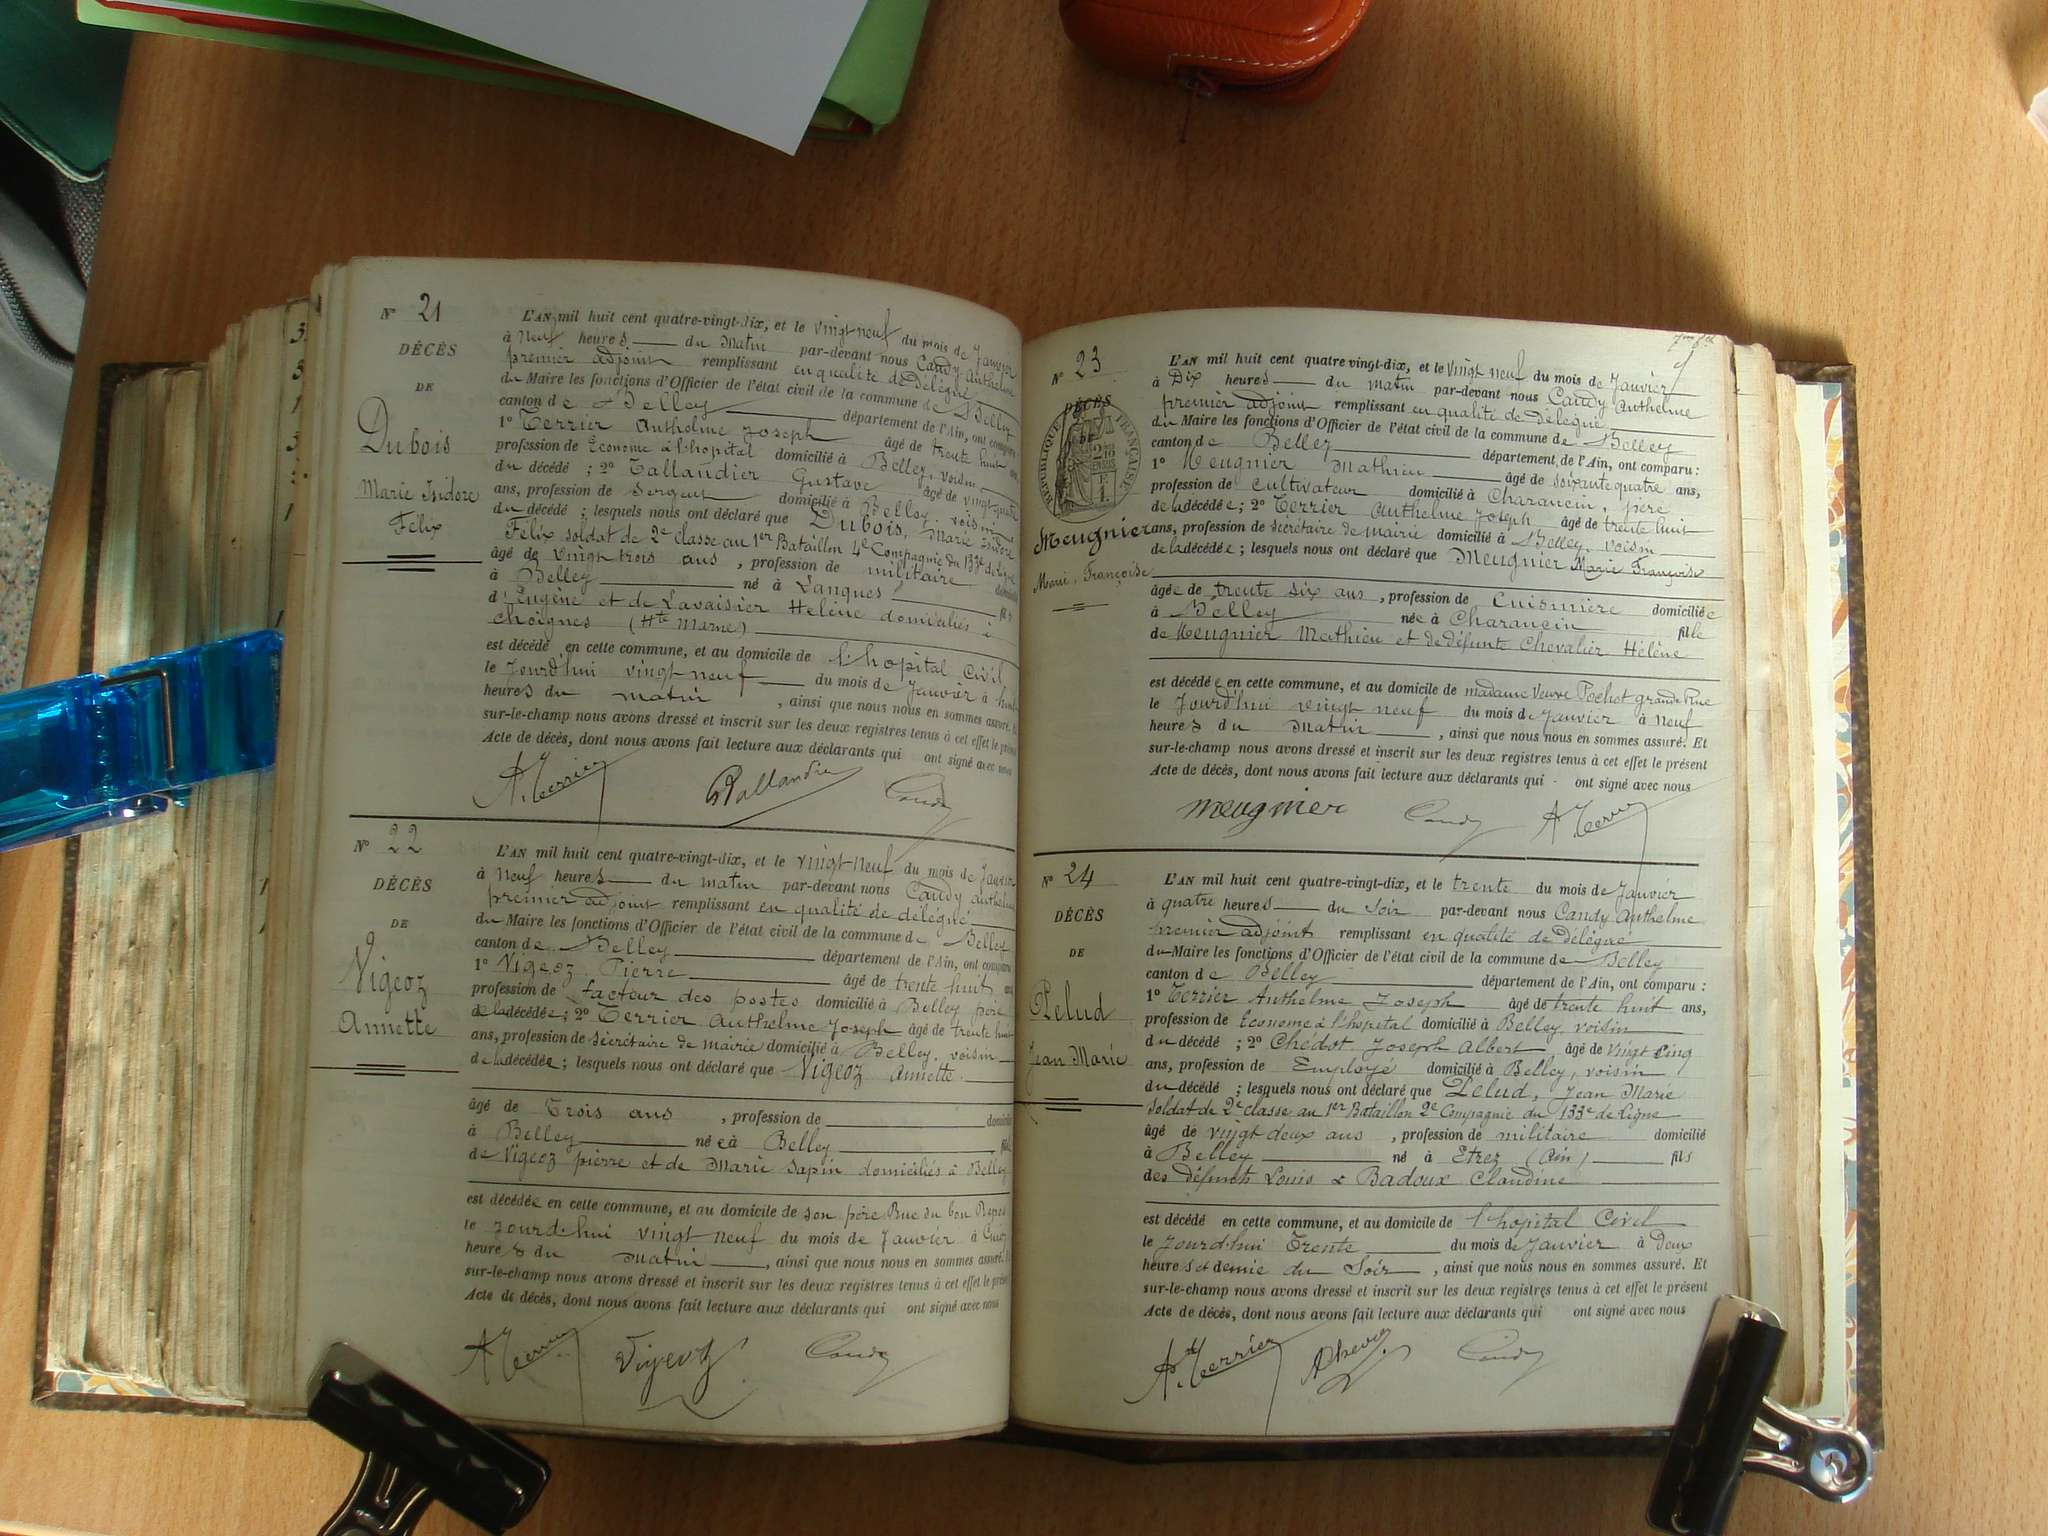 N° 21
DÉCÈS
DE
Dubois
Marie Isidore
Félix
L'AN mil huit cent quatre-vingt-dix, et le vingt neuf du mois de Janvier
à Neuf heures du Matin par-devant nous Candy Anthelme
premier adjoint remplissant en qualité de Délégué
du Maire les fonctions d'Officier de l'état civil de la commune de Belley
canton de Belley département de l'Ain, ont comparu
1° Terrier Anthelme Joseph âgé de trente huit ans,
profession de Econome à l'hopital domicilié à Belley, voisin
du décédé ; 2° Tallandier Gustave âgé de vingt quatre
ans, profession de Sergent domicilié à Belley, voisin
du décédé ; lesquels nous ont déclaré que Dubois, Marie Isidore
Félix soldat de 2e classe au 1er Bataillon 4e Compagnie du 133e de Ligne
âgé de vingt trois ans , profession de militaire domicilié
à Belley né à Langres fils
d'Eugène et de Lavaisier Hélène domiciliés à
Choignes (Hte Marne)
est décédé en cette commune, et au domicile de l'hopital Civil
le Jourd'hui vingt neuf du mois de Janvier à huit
heures du matin , ainsi que nous nous en sommes assuré. Et
sur-le-champ nous avons dressé et inscrit sur les deux registres tenus à cet effet le présent
Acte de décès, dont nous avons fait lecture aux déclarants qui ont signé avec nous
A. Terrier GTallandier Candy
N° 22
DÉCÈS
DE
Vigeoz
Annette
L'AN mil huit cent quatre-vingt-dix, et le vingt-neuf du mois de Janvier
à Neuf heures du matin par-devant nous Candy anthelme
premier adjoint remplissant en qualité de délégué
du Maire les fonctions d'Officier de l'état civil de la commune de Belley
canton de Belley département de l'Ain, ont comparu
1° Vigeoz Pierre âgé de trente huit ans
profession de facteur des postes domicilié à Belley père
de la décédée ; 2° Terrier Anthelme Joseph âgé de trente huit
ans, profession de Sécrétaire de mairie domicilié à Belley, voisin
de la décédée ; lesquels nous ont déclaré que Vigeoz Annette
âgé de Trois ans , profession de domicilié
à Belley née à Belley fille
de Vigeoz pierre et de Marie Sapin domiciliés à Belley
est décédée en cette commune, et au domicile de son père Rue du bon Repos
le Jourd'hui vingt neuf du mois de Janvier à Cinq
heures du Matin , ainsi que nous nous en sommes assuré. Et
sur-le-champ nous avons dressé et inscrit sur les deux registres tenus à cet effet le présent
Acte de décès, dont nous avons fait lecture aux déclarants qui ont signé avec nous
A Terrier Vigeoz Candy
N° 23
DÉCÈS
DE
RÉPUBLIQUE FRANÇAISE
Meugnier
Marie, Françoise
L'AN mil huit cent quatre-vingt-dix, et le vingt neuf du mois de Janvier
à Dix heures du matin par-devant nous Candy Anthelme
premier adjoint remplissant en qualité de Délégué
du Maire les fonctions d'Officier de l'état civil de la commune de Belley
canton de Belley département de l'Ain, ont comparu :
1° Meugnier Mathieu âgé de soixante quatre ans,
profession de cultivateur domicilié à Charancin, père
de la décédée ; 2° Terrier Anthelme Joseph âgé de trente huit
ans, profession de sécrétaire de mairie domicilié à Belley, voisin
de la décédée ; lesquels nous ont déclaré que Meugnier Marie Françoise
âgée de trente six ans , profession de cuisinière domiciliée
à Belley née à Charancin fille
de Meugnier Mathieu et de défunte Chevalier Hélène
est décédée en cette commune, et au domicile de madame Veuve Pochot grande Rue
le Jourd'hui vingt neuf du mois de Janvier à Neuf
heures du Matin , ainsi que nous nous en sommes assuré. Et
sur-le-champ nous avons dressé et inscrit sur les deux registres tenus à cet effet le présent
Acte de décès, dont nous avons fait lecture aux déclarants qui ont signé avec nous
meugnier Candy A Terrier
N° 24
DÉCÈS
DE
Pelud
Jean Marie
L'AN mil huit cent quatre-vingt-dix, et le trente du mois de Janvier
à quatre heures du Soir par-devant nous Candy Anthelme
premier adjoint remplissant en qualité de Délégué
du Maire les fonctions d'Officier de l'état civil de la commune de Belley
canton de Belley département de l'Ain, ont comparu :
1° Terrier Anthelme Joseph âgé de trente huit ans,
profession de Econome à l'hopital domicilié à Belley, voisin
du décédé ; 2° Chédot Joseph Albert, âgé de vingt cinq
ans, profession de Employé domicilié à Belley, voisin
du décédé ; lesquels nous ont déclaré que Pelud, Jean Marie
Soldat de 2e classe au 1er Bataillon 2e Compagnie du 133e de Ligne
âgé de vingt deux ans , profession de militaire domicilié
à Belley né à Etrez (Ain) fils
des défunts Louis & Badoux Claudine
est décédé en cette commune, et au domicile de l'hopital Civil
le Jourd'hui Trente du mois de Janvier à Deux
heures et demie du Soir , ainsi que nous nous en sommes assuré. Et
sur-le-champ nous avons dressé et inscrit sur les deux registres tenus à cet effet le présent
Acte de décès, dont nous avons fait lecture aux déclarants qui ont signé avec nous
A. Terrier Candy